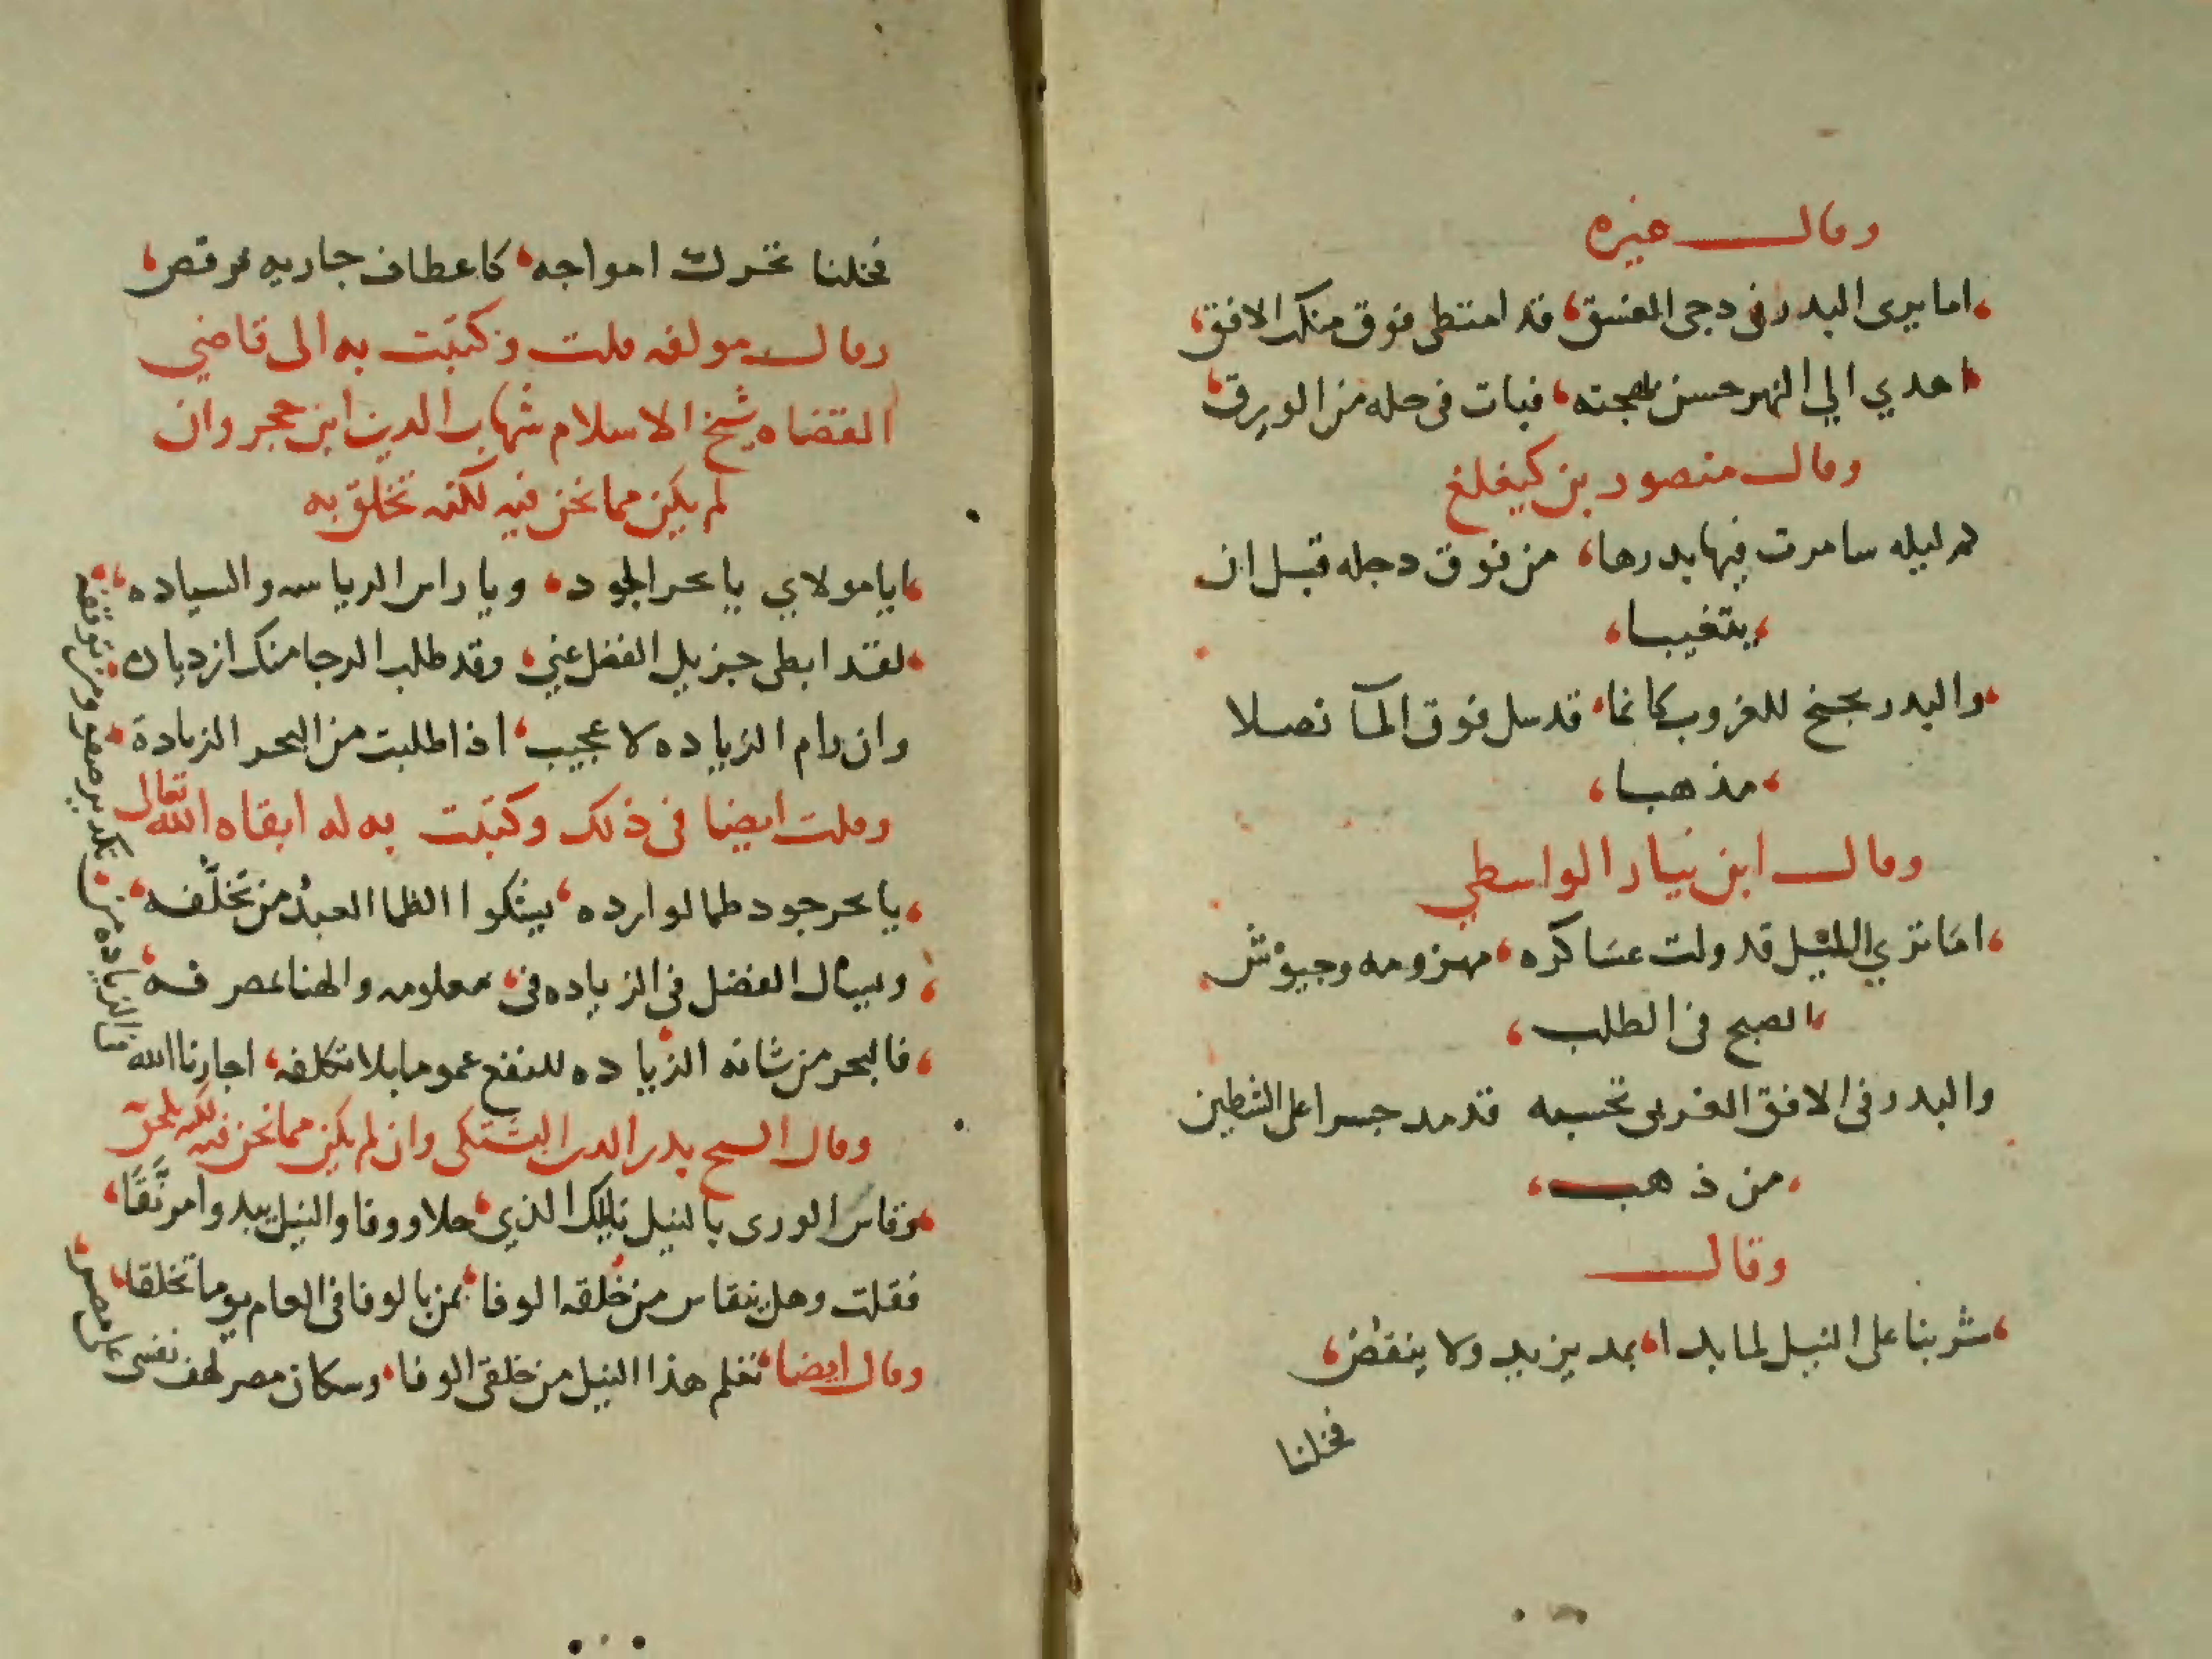 وقال غيره
اما يرى البدر في دجى الغسق، قد امتطى فوق منكب الافق،
اهدي الي النهر حسن بهجته، فبات في حله من الورق،
وقال منصور بن كيغلغ
كم ليله سامرت فيها بدرها، من فوق دجله قبل ان
يتغيبا،
والبدر يجنح للغروب كانما، قد سل فوق المآ نصلا
مذهبا،
وقال ابن الواسطي
اما تري الليل قد ولت عساكره، مهزومه وجيوش
الصبح في الطلب،
والبدر في الافق الغربي تحسبه قد مد جسرا على الشطين
من ذهب،
وقال
شربنا على النيل لما بدا، بمد يزيد ولا ينقض،
فخلنا
فخلنا تحرك امواجه، كاعطاف جاريه ترقص،
وقال مولفه قلت وكتبت به الى قاضي
القضاه شيخ الاسلام شهاب الدين ابن حجر وان
لم يكن مما نحن فيه لكنه تخلق به
ايا مولاي يا بحر الجود، ويا راس الرياسه والسياده،
لقد ابطى جزيل الفضل عني، وقد طلب الرجا منك ازدياده،
وان رام الزياده لا عجيب، اذا طلبت من البحر الزيادة
وقلت ايضا في ذلك وكتبت به له ابقاه الله تعالى
يا بحر جود طما لوارده، يشكوا الظما العبد من تخلفه،
ويسال الفضل في الزياده في، معلومه والهنا بمصرفه،
فالبحر من شانه الزياده للنفع عموما بلا تكلفه، اجارنا الله
من الزياده من نكد ومن توقفه
وقال الشيخ بدر الدين البشتكى وان لم يكن مما نحن فيه لكنه يلحق
وقاس الورى بالنيل نايلك الذي، حلا ووفا والنيل يبدوا مرنقا،
فقلت وهل ينقاس من خلقه الوفا، بمن بالوفا في العام يوما تخلقا،
وقال ايضا تعلم هذا النيل من خلقي الوفا، وسكان مصر لهف نفسى على مصر،